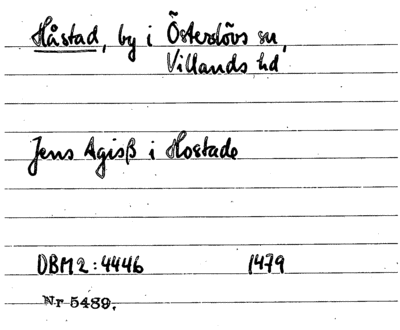 Håstad, by i Österslövs sn,
Villands hd
Jens Agisß i Hostade
DBM2:4446 1479
Nr 5489.